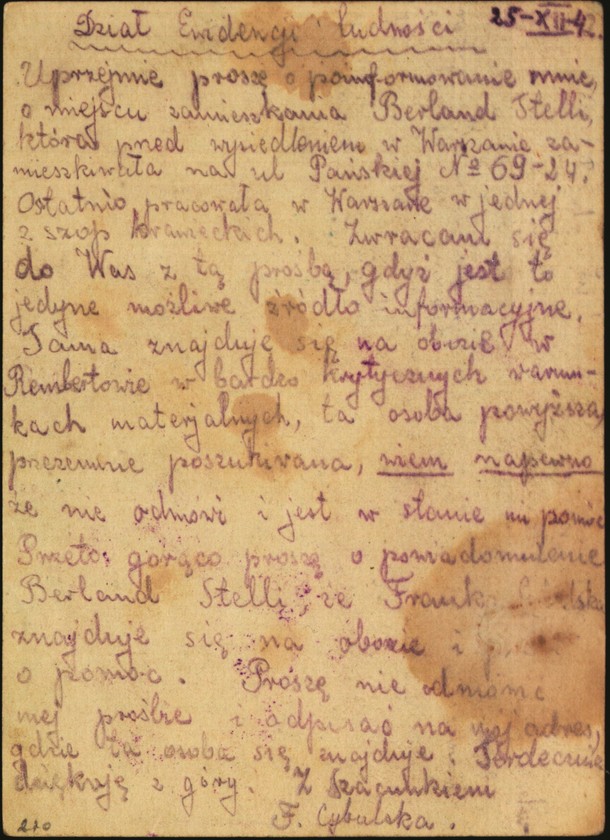 25-XII-42.
Dział Ewidencji ludności
Uprzejmie proszę o poinformowanie mnie,
o miejscu zamieszkania Berland Stelli,
która przed wysiedleniem w Warszawie za-
mieszkiwała na ul Pańskiej № 69-24.
Ostatnio pracowała w Warszawie w jednej
z szop krawieckich. Zwracam się
do Was z tą prośbą, gdyż jest to
jedyne możliwe źródło informacyjne.
Sama znajduję się na obozie w
Rembertowie w bardzo krytycznych warun-
kach materjalnych, ta osoba powyższa,
przezemnie poszukiwana, wiem napewno
że nie odmówi i jest w stanie mi pomóc
Przeto gorąco proszę o powiadomienie
Berland Stelli, że Franka
znajduje się na obozie i
o pomoc. Proszę nie odmówić
mej prośbie i odpisać na mój adres,
gdzie ta osoba się znajduje. Serdecznie
dziękuję z góry. Z szacunkiem
F. Cybulska.
210